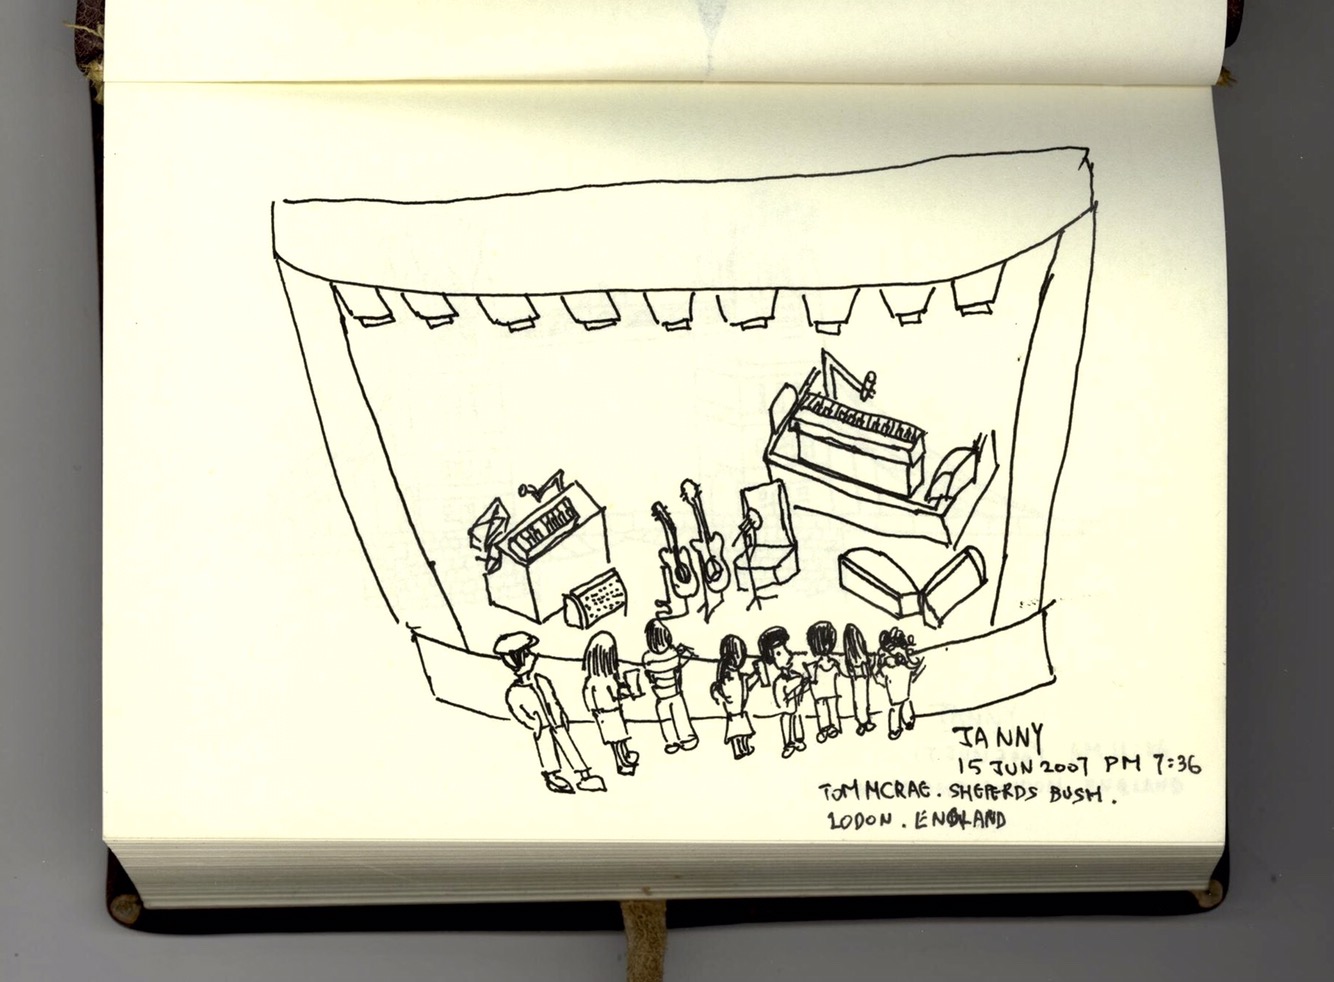 JANNY
15 JUN 2007 PM 7:36
TOM MCRAE. SHEPERDS BUSH.
LODON. ENGLAND